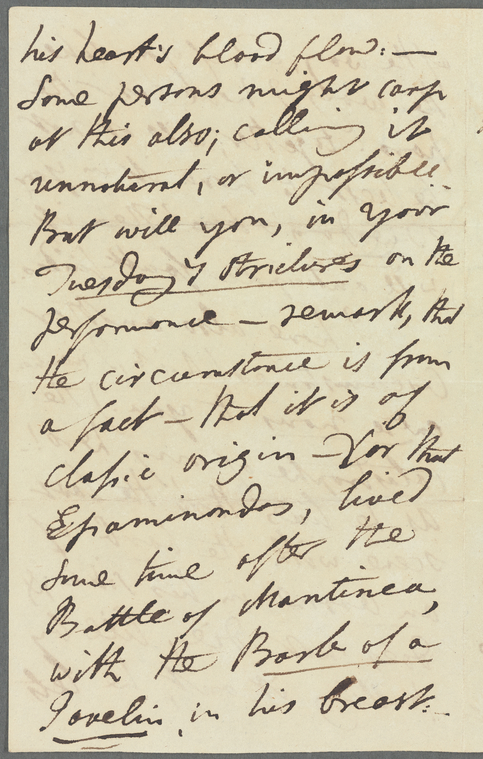 his heart's blood flow: —
Some persons might carp
at this also; calling it
unnatural, or impossible
But will you, in your
Tuesday's strictures on the
performance — remark, that
the circumstance is from
a fact — that it is of
classic origin — for that
Epaminondas, lived
some time after the
Battle of Mantinea,
with the Barb of a
Javelin, in his breast.